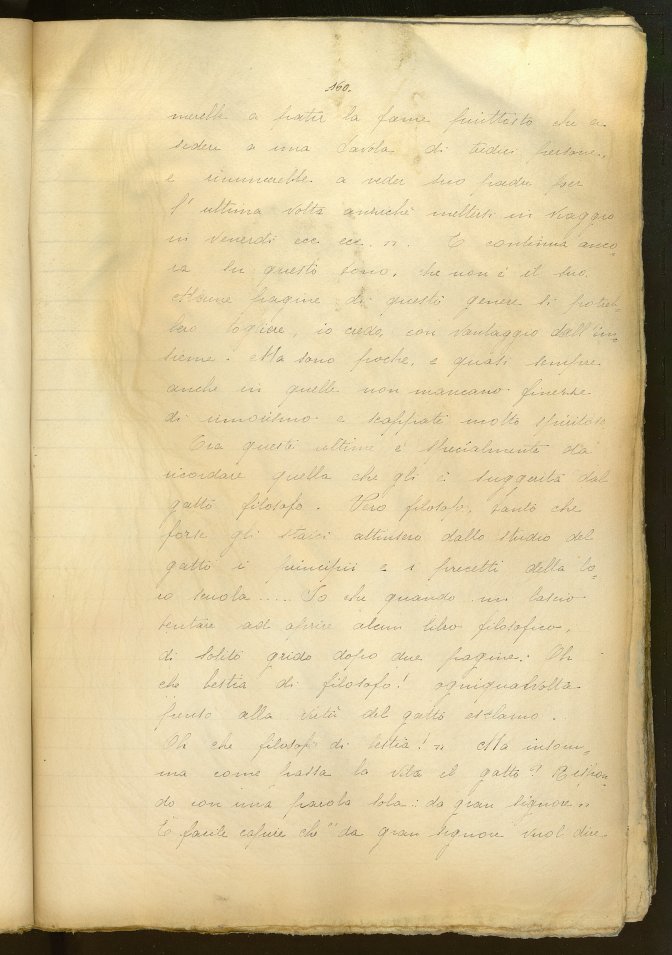 160.
merebbe a patir la fame piuttosto che se
sedere a una tavola di tredici persone,
e rinunzierebbe a veder suo padre per
l'ultima volta anzichè mettersi in viaggio
in venerdì ecc. ecc. ». E continua anco-
ra su questo tono, che non è il suo.
Alcune pagine di questo genere si potreb-
bero togliere, io credo, con vantaggio dell'in-
sieme. Ma sono poche, e quasi sempre
anche in quelle non mancano finezze
di umorismo e scappate molto spiritose
Tra queste ultime è specialmente da
ricordare quella che gli è suggerita dal
gatto filosofo. Vero filosofo, tanto che
forse gli stoici attinsero dallo studio del
gatto i principii e i precetti della lo-
ro scuola .... Io che quando mi lascio
tentare ad aprire alcun libro filosofico,
di solito grido dopo due pagine: Oh
che bestia di filosofo! ogniqualvolta
penso alla virtù del gatto esclamo.
Oh che filosofo di bestia! » Ma insom-
ma come passa la vita il gatto? Rispon-
do con una parola sola: da gran signore »
È facile capire che "da gran signore vuol dire